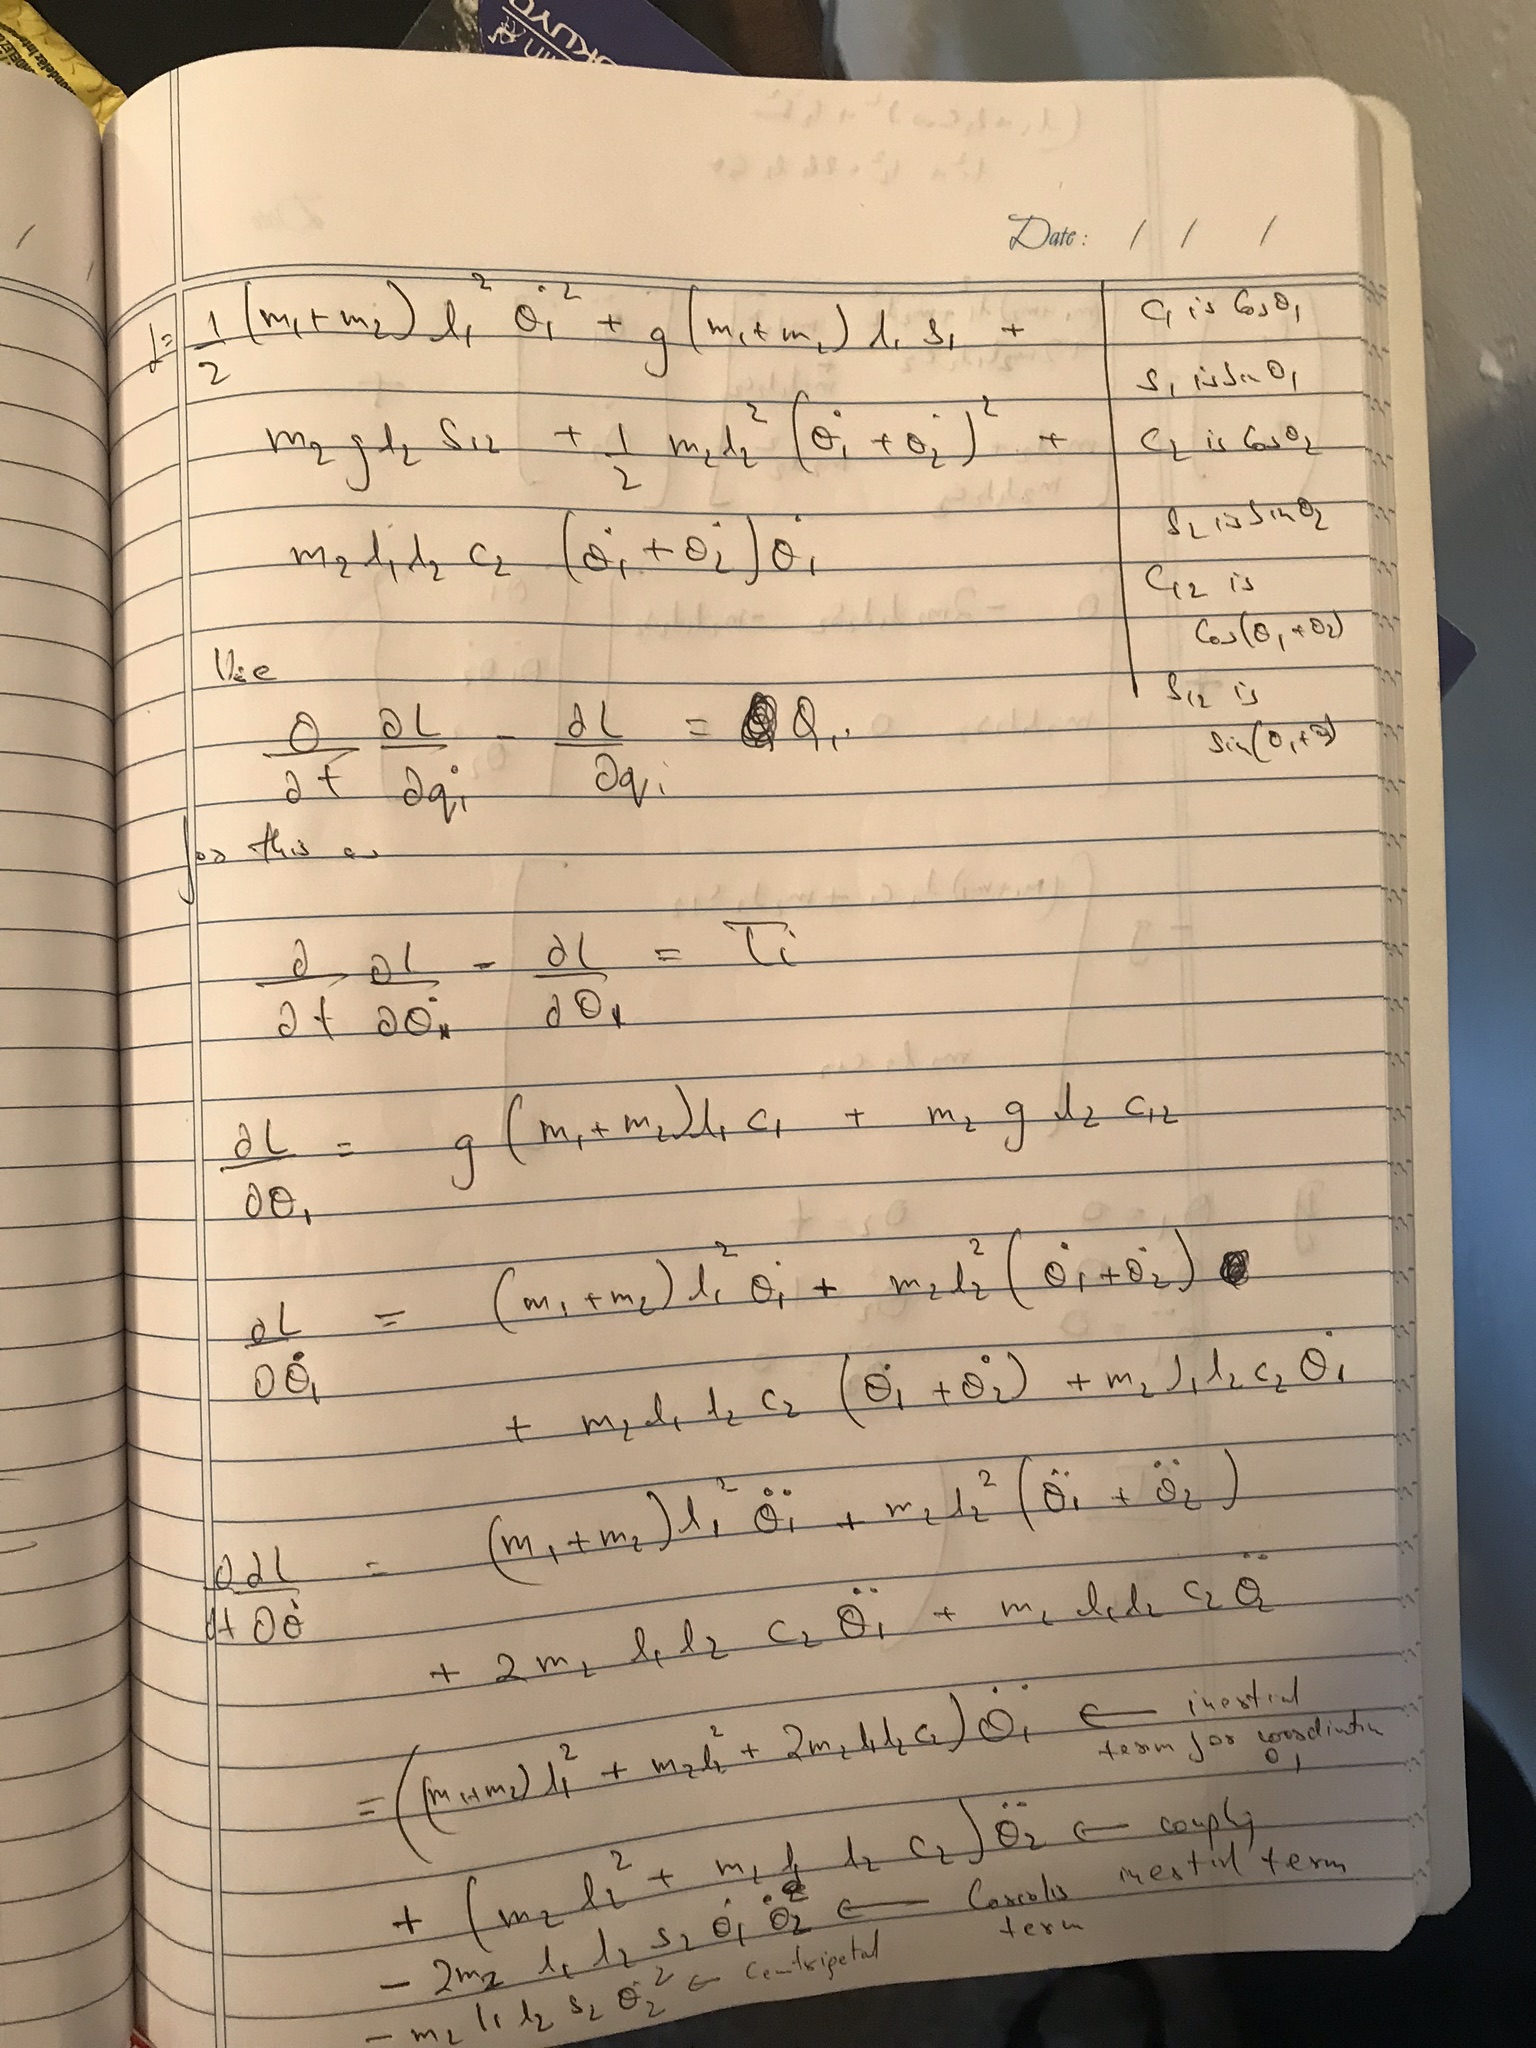 Date: / / /
L = 1/2 (m₁+m₂) l₁² θ̇₁² + g(m₁+m₂) l₁ s₁ +
m₂ g l₂ s₁₂ + 1/2 m₂ l₂² (θ̇₁ + θ̇₂)² +
m₂ l₁ l₂ c₂ (θ̇₁ + θ̇₂) θ̇₁
c₁ is Cosθ₁
s₁ is Sinθ₁
c₂ is Cosθ₂
s₂ is Sinθ₂
c₁₂ is
Cos(θ₁+θ₂)
s₁₂ is
Sin(θ₁+θ₂)
Use
∂/∂t ∂L/∂q̇ᵢ - ∂L/∂qᵢ = Qᵢ
for this as
∂/∂t ∂L/∂θ̇ᵢ - ∂L/∂θᵢ = τᵢ
∂L/∂θ₁ = g (m₁+m₂) l₁ c₁ + m₂ g l₂ c₁₂
∂L/∂θ̇₁ = (m₁+m₂) l₁² θ̇₁ + m₂ l₂² (θ̇₁+θ̇₂)
+ m₂ l₁ l₂ c₂ (θ̇₁+θ̇₂) + m₂ l₁ l₂ c₂ θ̇₁
∂/∂t ∂L/∂θ̇ = (m₁+m₂) l₁² θ̈₁ + m₂ l₂² (θ̈₁ + θ̈₂)
+ 2m₂ l₁ l₂ c₂ θ̈₁ + m₂ l₁ l₂ c₂ θ̈₂
= ((m₁+m₂) l₁² + m₂ l₂² + 2m₂ l₁ l₂ c₂) θ̈₁ ← inertial
term for coordination
θ₁
+ (m₂ l₂² + m₂ l₁ l₂ c₂) θ̈₂ ← coupling
inertial term
- 2m₂ l₁ l₂ s₂ θ̇₁ θ̇₂ ← Coriolis
term
- m₂ l₁ l₂ s₂ θ̇₂² ← Centripetal